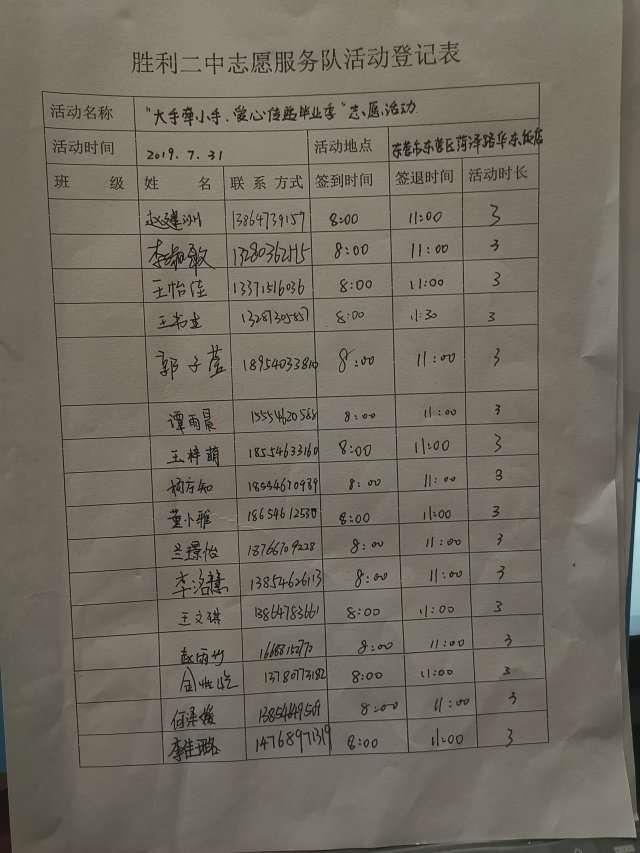 胜利二中志愿服务队活动登记表
活动名称 "大手牵小手、爱心传递毕业季"志愿活动
活动时间 2019.7.31 活动地点 东营市东营区菏泽路华东饭店
班 级 姓 名 联系方式 签到时间 签退时间 活动时长
赵建洲 13864739157 8:00 11:00 3
李淑敏 13280362515 8:00 11:00 3
王怡佳 13371516036 8:00 11:00 3
13287305857 8:00 11:30 3
郭子萱 18954033810 8:00 11:00 3
谭雨晨 15554620565 8:00 11:00 3
王梓萌 18554633160 8:00 11:00 3
18554670939 8:00 11:00 3
董小雅 18654612530 8:00 11:00 3
兰璟怡 18766709228 8:00 11:00 3
李洺慧 13854626113 8:00 11:00 3
王文琪 13864783661 8:00 11:00 3
赵雨竹 8:00 11:00 3
13780773182 8:00 11:00 3
13854649509 8:00 11:00 3
李佳璐 14768971319 8:00 11:00 3